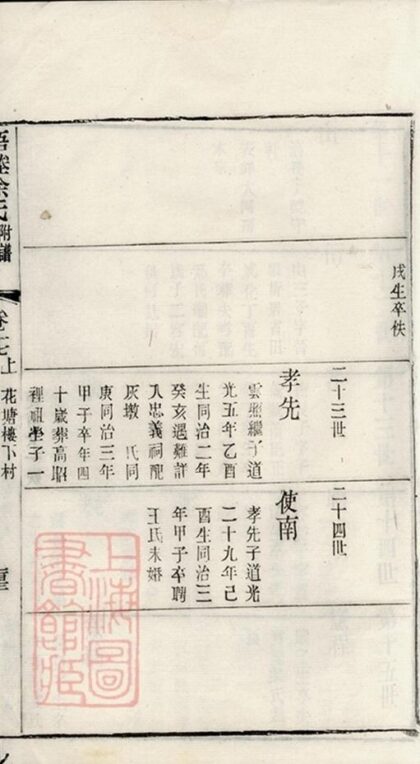 戌生卒佚
二十三世
二十四世
孝先
雲照繼子道
光五年乙酉
生同治二年
癸亥遇難詳
入忠義祠配
灰墩 氏同
庚同治三年
甲子卒年四
十歲葬高昭
裡祖塋子一
使南
孝先子道光
二十九年己
酉生同治三
年甲子卒聘
王氏未婚
余氏附譜
卷七上 花塘樓下村
上海圖
書館藏